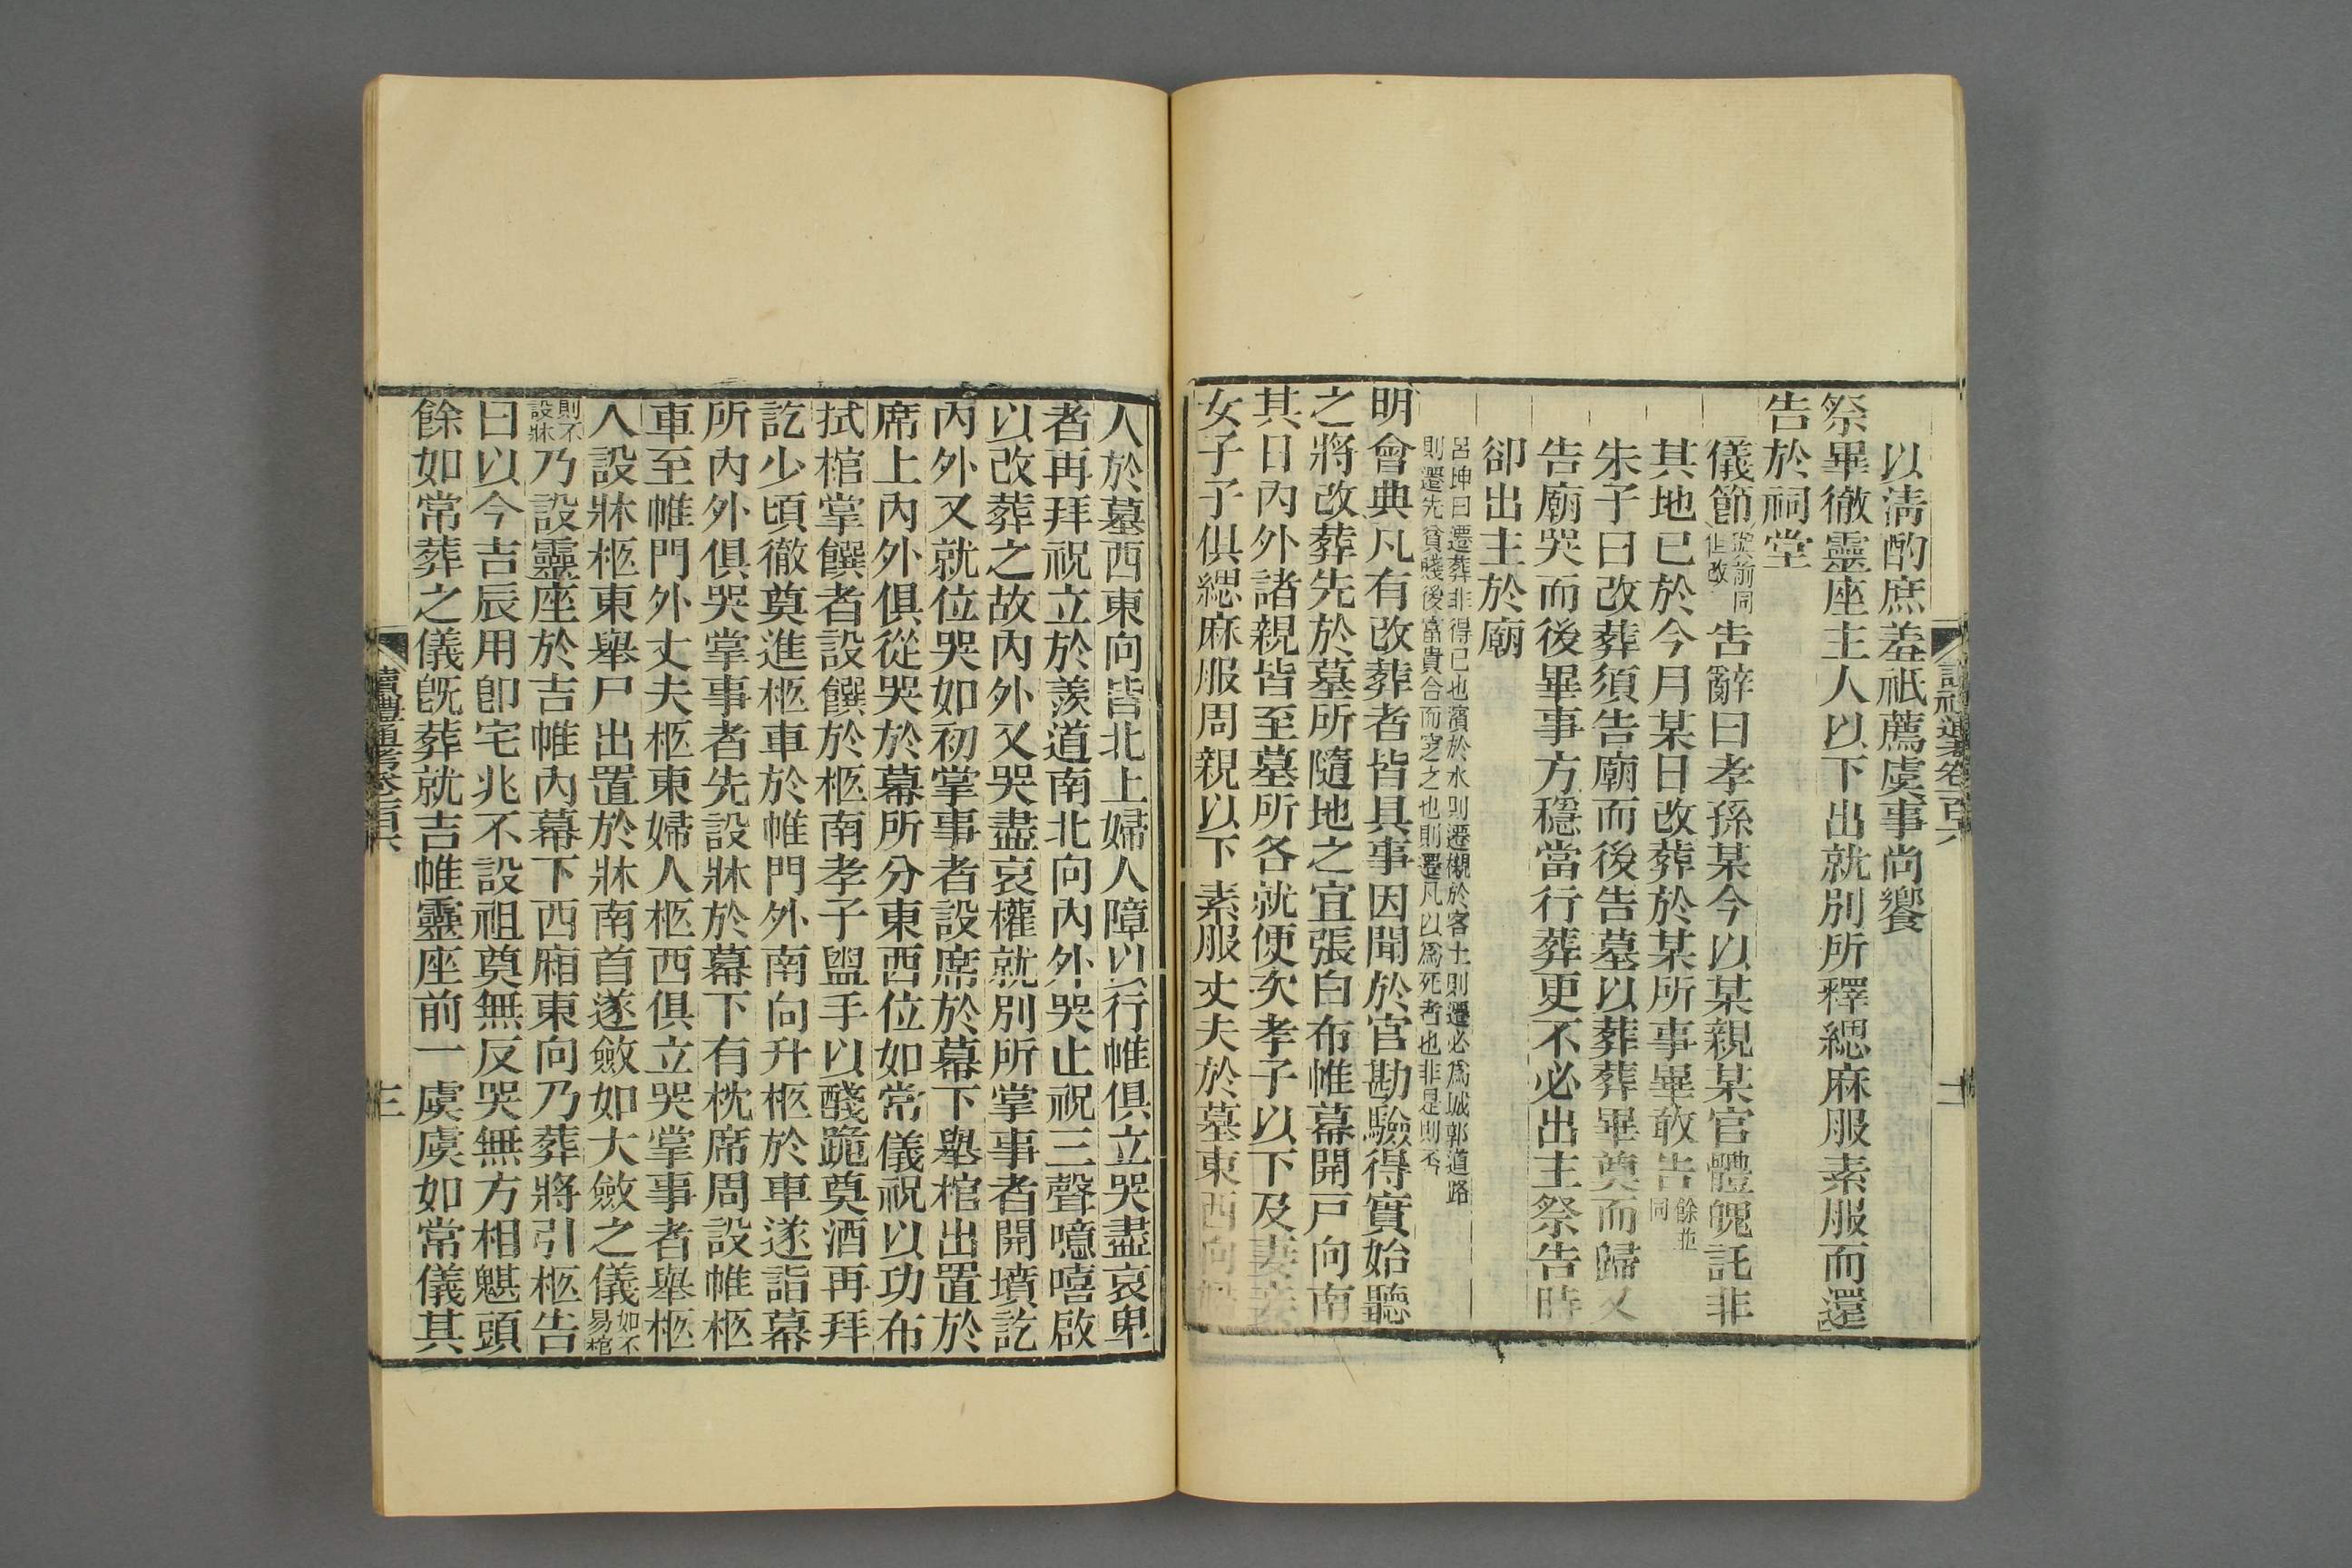 以淸酌庶羞祇薦虞事尚饗
祭畢徹靈座主人以下出就別所釋緦麻服素服而還
告於祠堂
儀節與前同但改告辭曰孝孫某今以某親某官體魄託非
其地已於今月某日改葬於某所事畢敢告餘並同
朱子曰改葬須告廟而後告墓以葬葬畢奠而歸又
告廟哭而後畢事方穩當行葬更不必出主祭告時
卻出主於廟
呂坤曰遷葬非得已也濱於水則遷櫬於客土則遷必為城郭道路
則遷先貧賤後富貴合而窆之也則遷凡以為死者也非是則不
明會典凡有改葬者皆具事因聞於官勘驗得實始聽
之將改葬先於墓所隨地之宜張白布帷幕開戸向南
其日內外諸親皆至墓所各就便次孝子以下及妻妾
女子子俱緦麻服周親以下素服丈夫於墓東西向
讀禮通考卷一百六
二
人於墓西東向皆北上婦人障以行帷俱立哭盡哀卑
者再拜祝立於羨道南北向內外哭止祝三聲噫嘻啟
以改葬之故內外又哭盡哀權就別所掌事者開墳訖
內外又就位哭如初掌事者設席於幕下舉棺出置於
席上內外俱從哭於幕所分東西位如常儀祝以功布
拭棺掌饌者設饌於柩南孝子盥手以醆跪奠酒再拜
訖少頃徹奠進柩車於帷門外南向升柩於車遂詣幕
所內外俱哭掌事者先設牀於幕下有枕席周設帷柩
車至帷門外丈夫柩東婦人柩西俱立哭掌事者舉柩
人設牀柩東舉尸出置於牀南首遂斂如大斂之儀如不易棺
則不設牀乃設靈座於吉帷內幕下西廂東向乃葬將引柩告
曰以今吉辰用卽宅兆不設祖奠無反哭無方相魌頭
餘如常葬之儀旣葬就吉帷靈座前一虞虞如常儀其
讀禮通考卷一百六
三